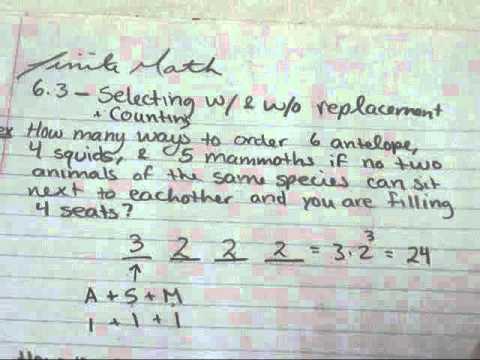 Finite Math
6.3 - Selecting w/ & w/o replacement
+ Counting
ex How many ways to order 6 antelope,
4 squids, & 5 mammoths if no two
animals of the same species can sit
next to eachother and you are filling
4 seats?
3 2 2 2 = 3·2³ = 24
↑
A + S + M
1 + 1 + 1